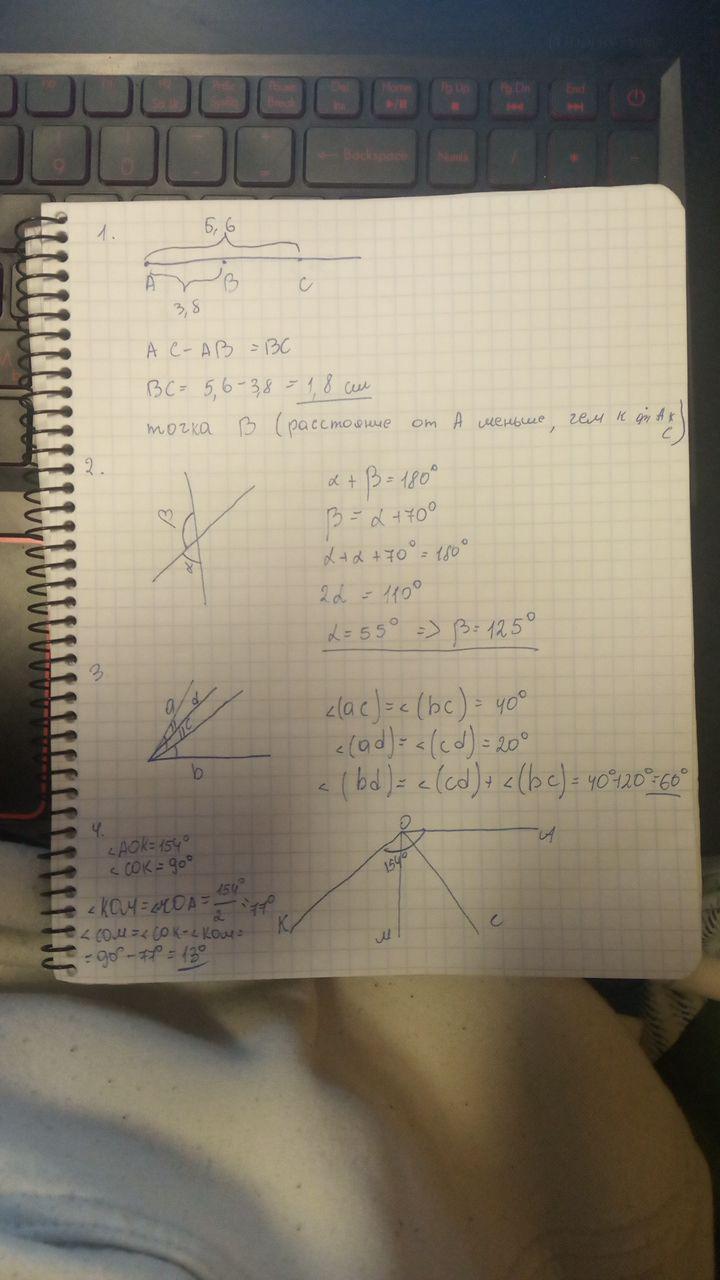 Prtsc
SysRq
Pause
Break
Del
Ins
Home
Pg Up
Pg Dn
End
9
0
-
+
=
← Backspace
Numlk
/
*
-
1.
5,6
A B C
3,8
AC - AB = BC
BC = 5,6 - 3,8 = 1,8 см
точка B (расстояние от A меньше, чем к
C)
2.
β
α
α + β = 180°
β = α + 70°
α + α + 70° = 180°
2α = 110°
α = 55° => β = 125°
3
a d
c
b
<(ac) = <(bc) = 40°
<(ad) = <(cd) = 20°
<(bd) = <(cd) + <(bc) = 40°+20°=60°
4.
<AOK = 154°
<COK = 90°
<KOM = <MOA = 154°/2 = 77°
<COM = <COK - <KOM =
= 90° - 77° = 13°
O A
154°
K M C